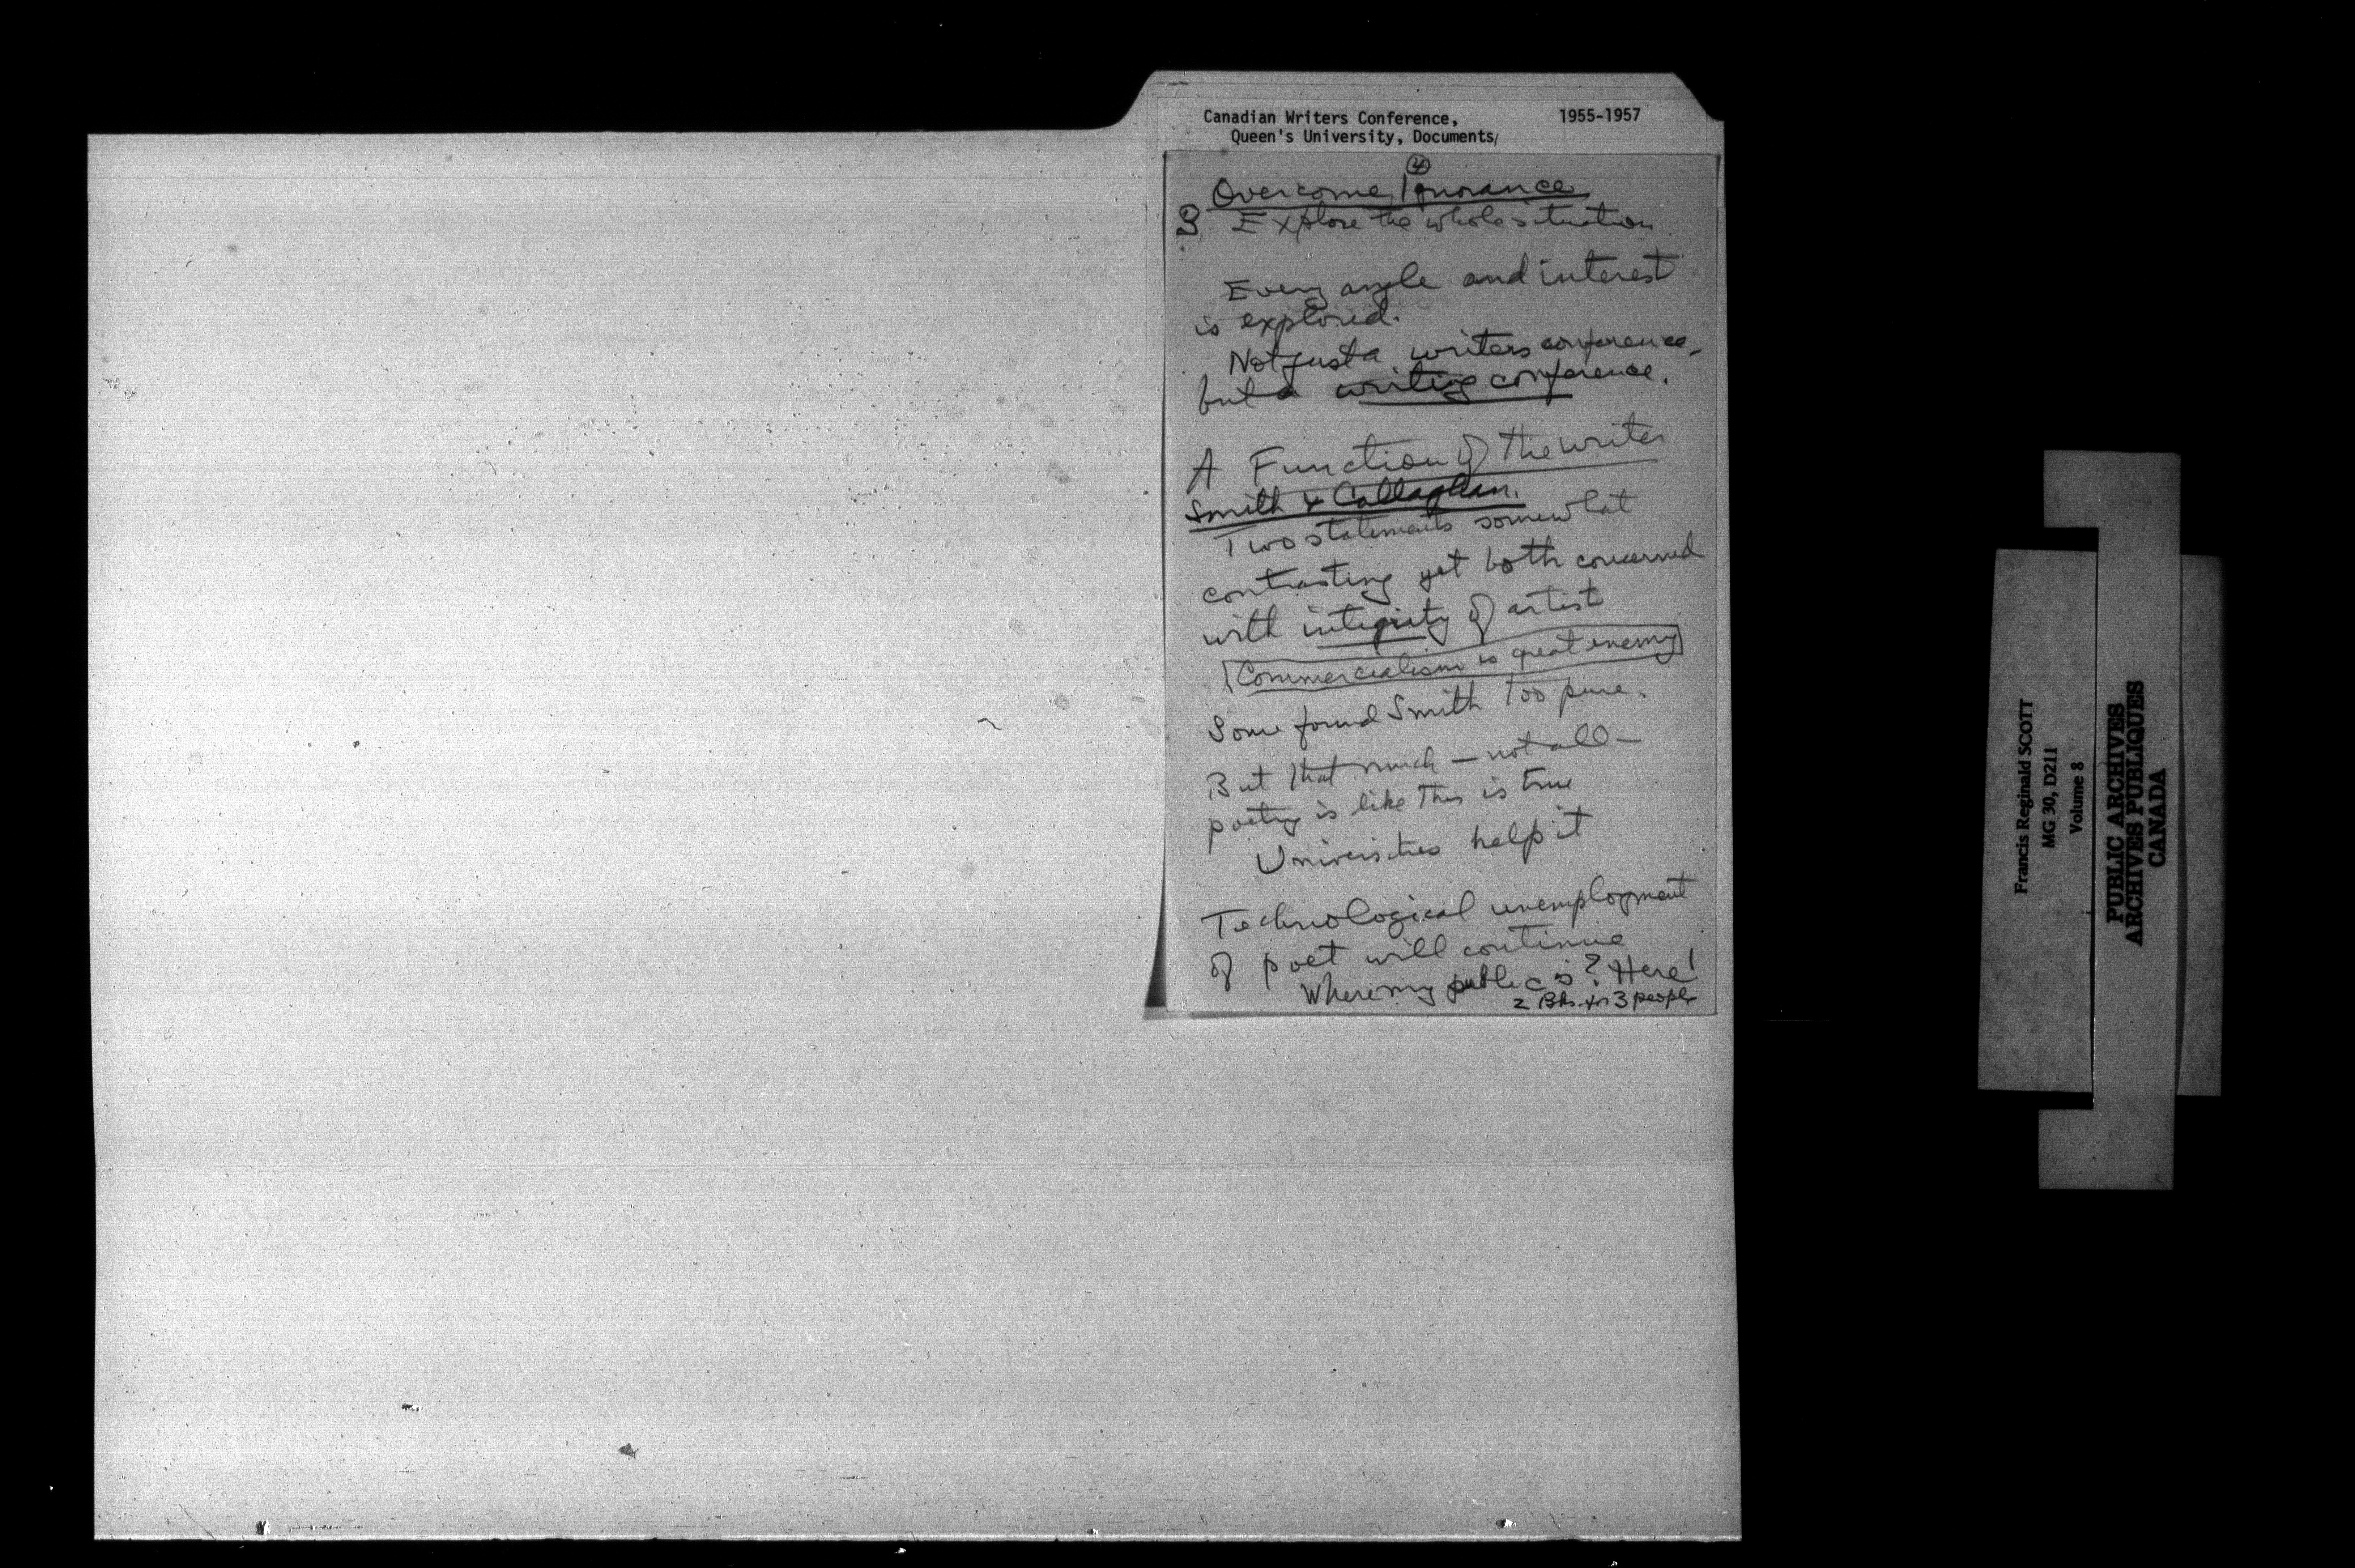 Canadian Writers Conference, 1955-1957
Queen's University, Documents/
4
Overcome Ignorance
3. Explore the whole situation.
Every angle and interest
is explored.
Not just a writers conference,
but a writing conference.
A Function of the writer
Smith & Callaghan.
Two statements somewhat
contrasting yet both concerned
with integrity of artist
Commercialism is great enemy
Some found Smith too pure.
But that much — not all —
poetry is like this is true
Universities help it
Technological unemployment
of poet will continue
Where my public is? Here!
2 Bks for 3 people
Francis Reginald SCOTT
MG 30, D211
Volume 8
PUBLIC ARCHIVES
ARCHIVES PUBLIQUES
CANADA